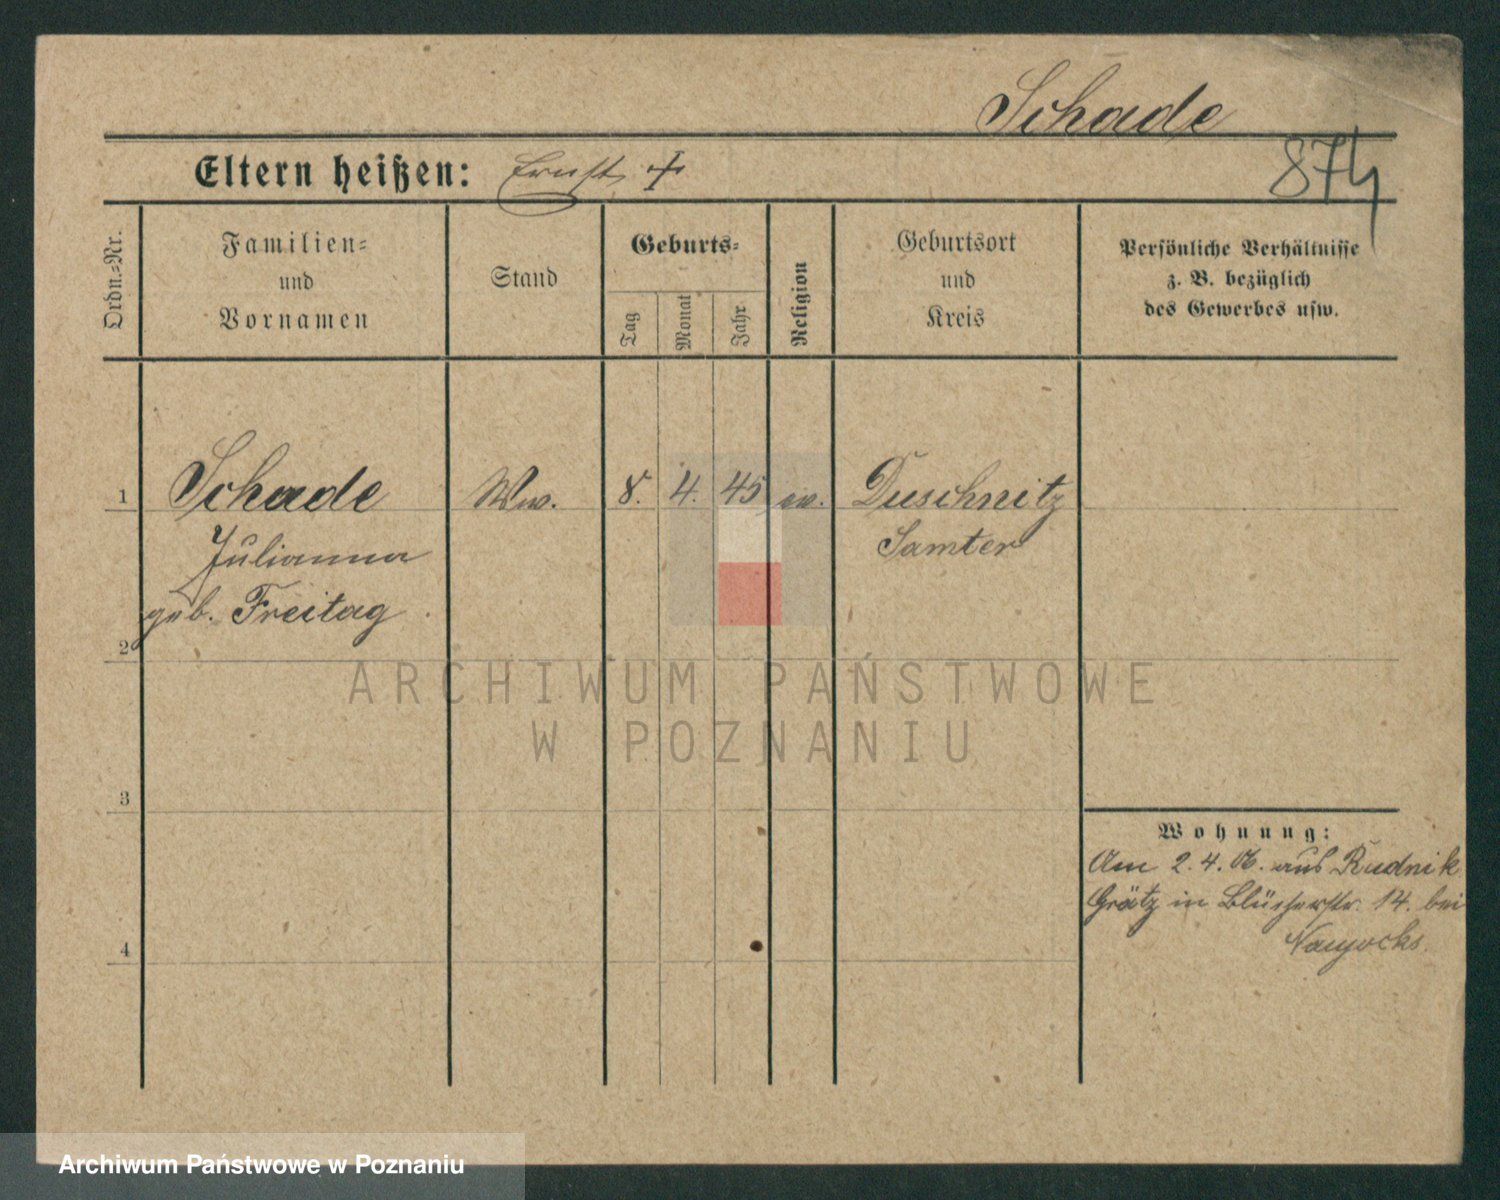 Schade
874
Eltern heißen: Ernst +
Ordn.=Nr.
Familien=
und
Vornamen
Stand
Geburts=
Tag
Monat
Jahr
Religion
Geburtsort
und
Kreis
Persönliche Verhältnisse
z. B. bezüglich
des Gewerbes usw.
1 Schade Ww. 8. 4. 45 ev. Duschnitz
Julianna Samter
geb. Freitag
2
ARCHIWUM PAŃSTWOWE
W POZNANIU
3
Wohnung:
Am 2.4.06. aus Rudnik
Grätz in Blücherstr. 14. bei
4
Archiwum Państwowe w Poznaniu